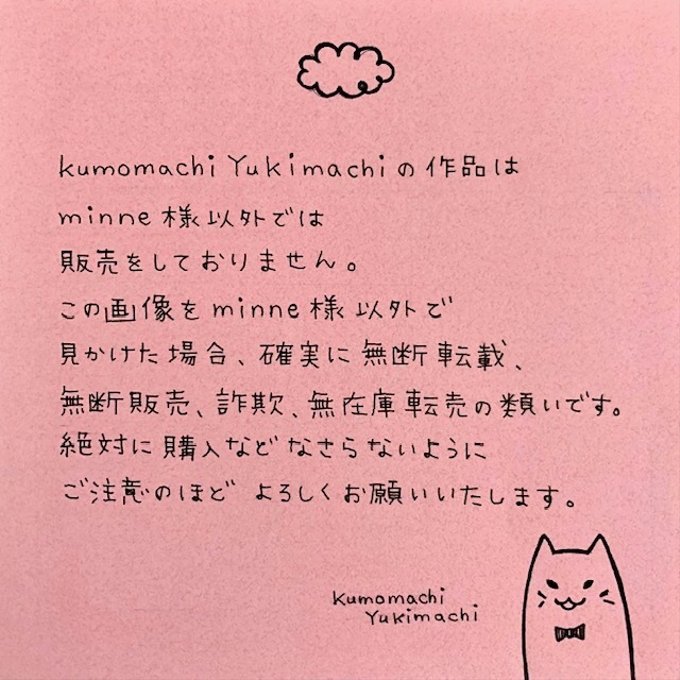 kumomachi Yukimachiの作品は
minne様以外では
販売をしておりません。
この画像をminne様以外で
見かけた場合、確実に無断転載、
無断販売、詐欺、無在庫転売の類いです。
絶対に購入などなさらないように
ご注意のほど よろしくお願いいたします。
kumomachi
Yukimachi